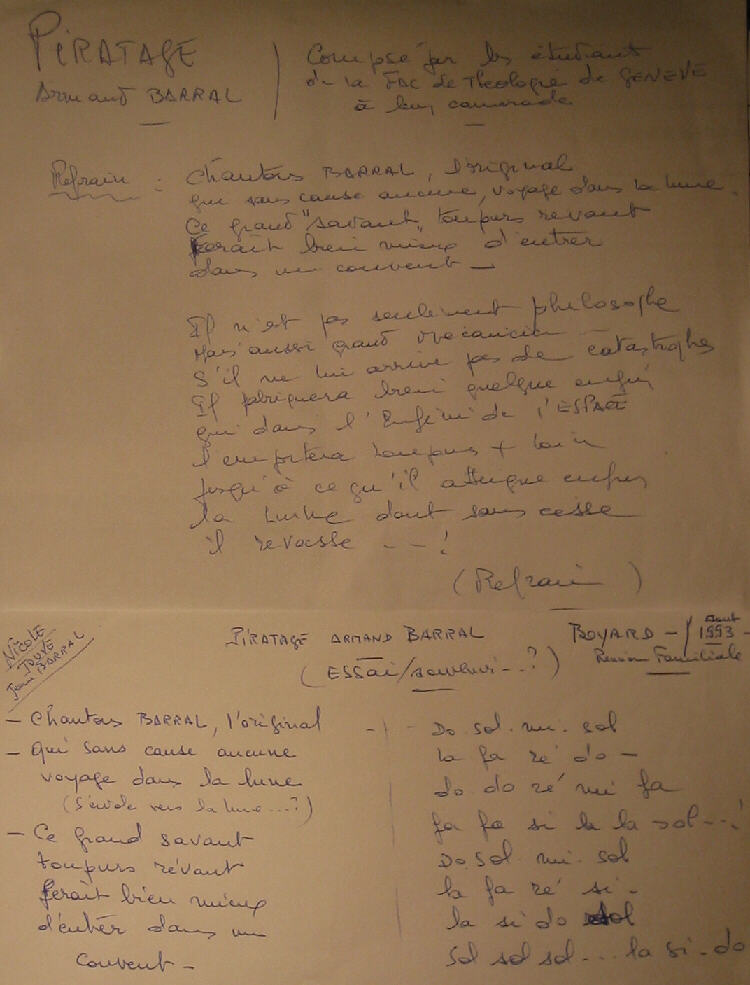 PIRATAGE
Armand BARRAL
Composé par les étudiant
de la FAC de Théologie de GENEVE
à leur camarade
Refrain :
Chantons BARRAL, l'original
qui sans cause aucune, voyage dans la lune.
Ce grand "savant" toujours revant
Ferait bien mieux d'entrer
dans un couvent —
Il n'est pas seulement philosophe
Mais aussi grand mécanicien
S'il ne lui arrive pas de catastrophe
Il fabriquera bien quelque engin
qui dans l' de l'ESPACE
l'emportera toujours + loin
jusqu'à ce qu'il atteigne enfin
la lune dont sans cesse
il revasse --- !
(Refrain)
NICOLE
JOUVE
BARRAL
PIRATAGE ARMAND BARRAL
(ESSAI/souvenir --- ?)
BOYARD - Aout
1993 -
Réunion Familiale
- Chantons BARRAL, l'original
- qui sans cause aucune
voyage dans la lune
(S'évade vers la lune ...?)
- Ce grand savant
toujours révant
ferait bien mieux
d'entrer dans un
couvent -
Do. sol. mi. sol
la fa ré do -
do do ré mi fa
fa fa si la la sol --- !
Do. sol. mi. sol
la fa ré si -
la si do sol
sol sol sol ... la si - do